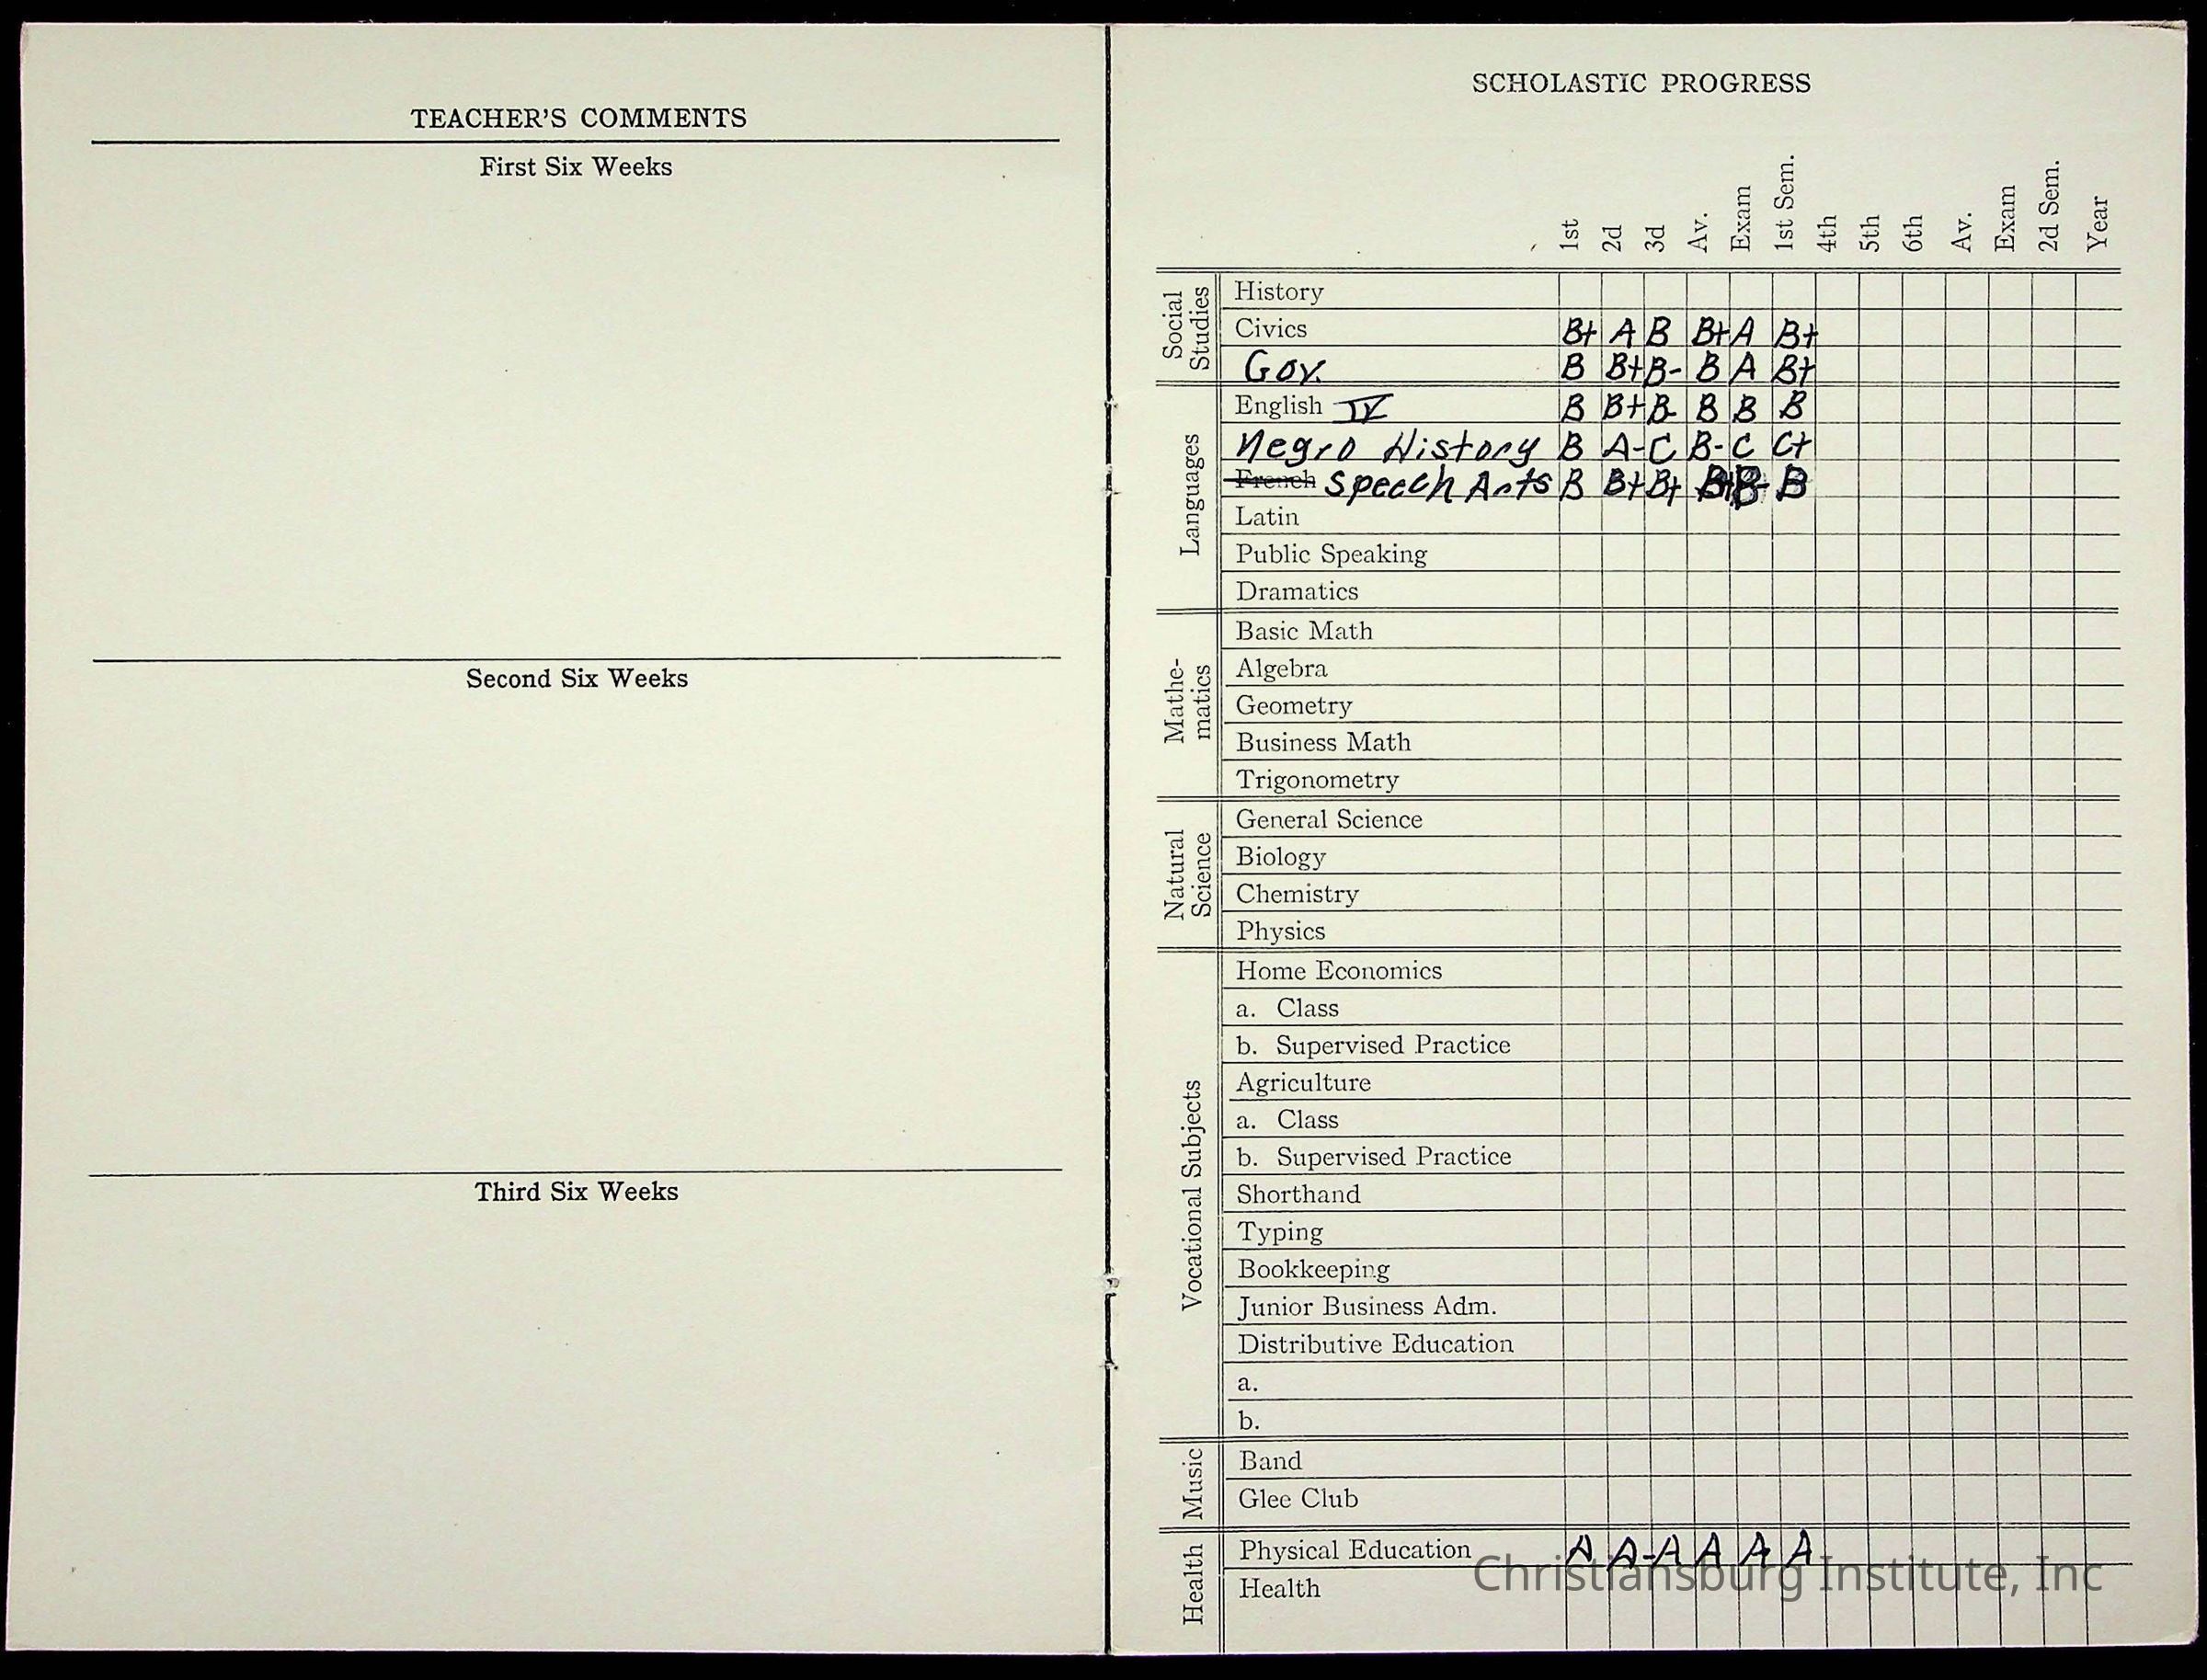 TEACHER'S COMMENTS
First Six Weeks
Second Six Weeks
Third Six Weeks
SCHOLASTIC PROGRESS
1st 2d 3d Av. Exam 1st Sem. 4th 5th 6th Av. Exam 2d Sem. Year
Social Studies
History
Civics B+ A B B+ A B+
Gov. B B+ B- B A B+
Languages
English IV B B+ B- B B B
Negro History B A- C B- C C+
French Speech Arts B B+ B+ B+ B- B
Latin
Public Speaking
Dramatics
Mathe-
matics
Basic Math
Algebra
Geometry
Business Math
Trigonometry
Natural
Science
General Science
Biology
Chemistry
Physics
Vocational Subjects
Home Economics
a. Class
b. Supervised Practice
Agriculture
a. Class
b. Supervised Practice
Shorthand
Typing
Bookkeeping
Junior Business Adm.
Distributive Education
a.
b.
Music
Band
Glee Club
Health
Physical Education A A- A A A A
Health
Christiansburg Institute, Inc